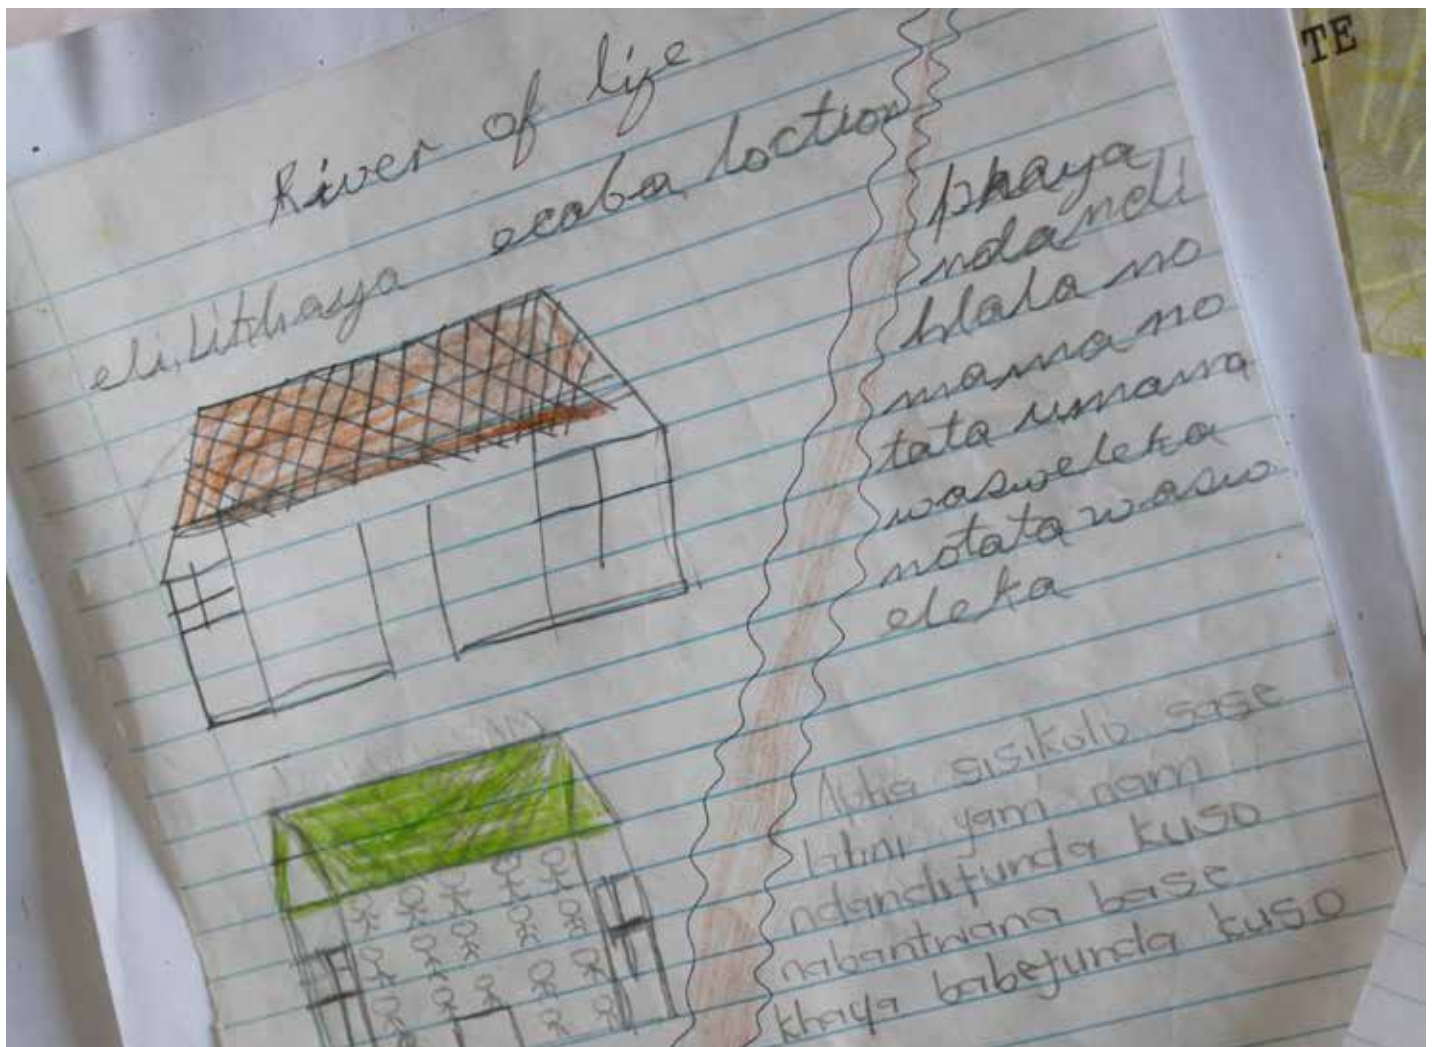 River of life
eli, likhaya ecaba loction
phaya
ndandi
hlala no
mama no
tata umama
wasweleka
notata wasw
eleka
Apha sisikolo sase
lalini yam nam
ndandifunda kuso
nabantwana base
khaya babefunda kuso
TE